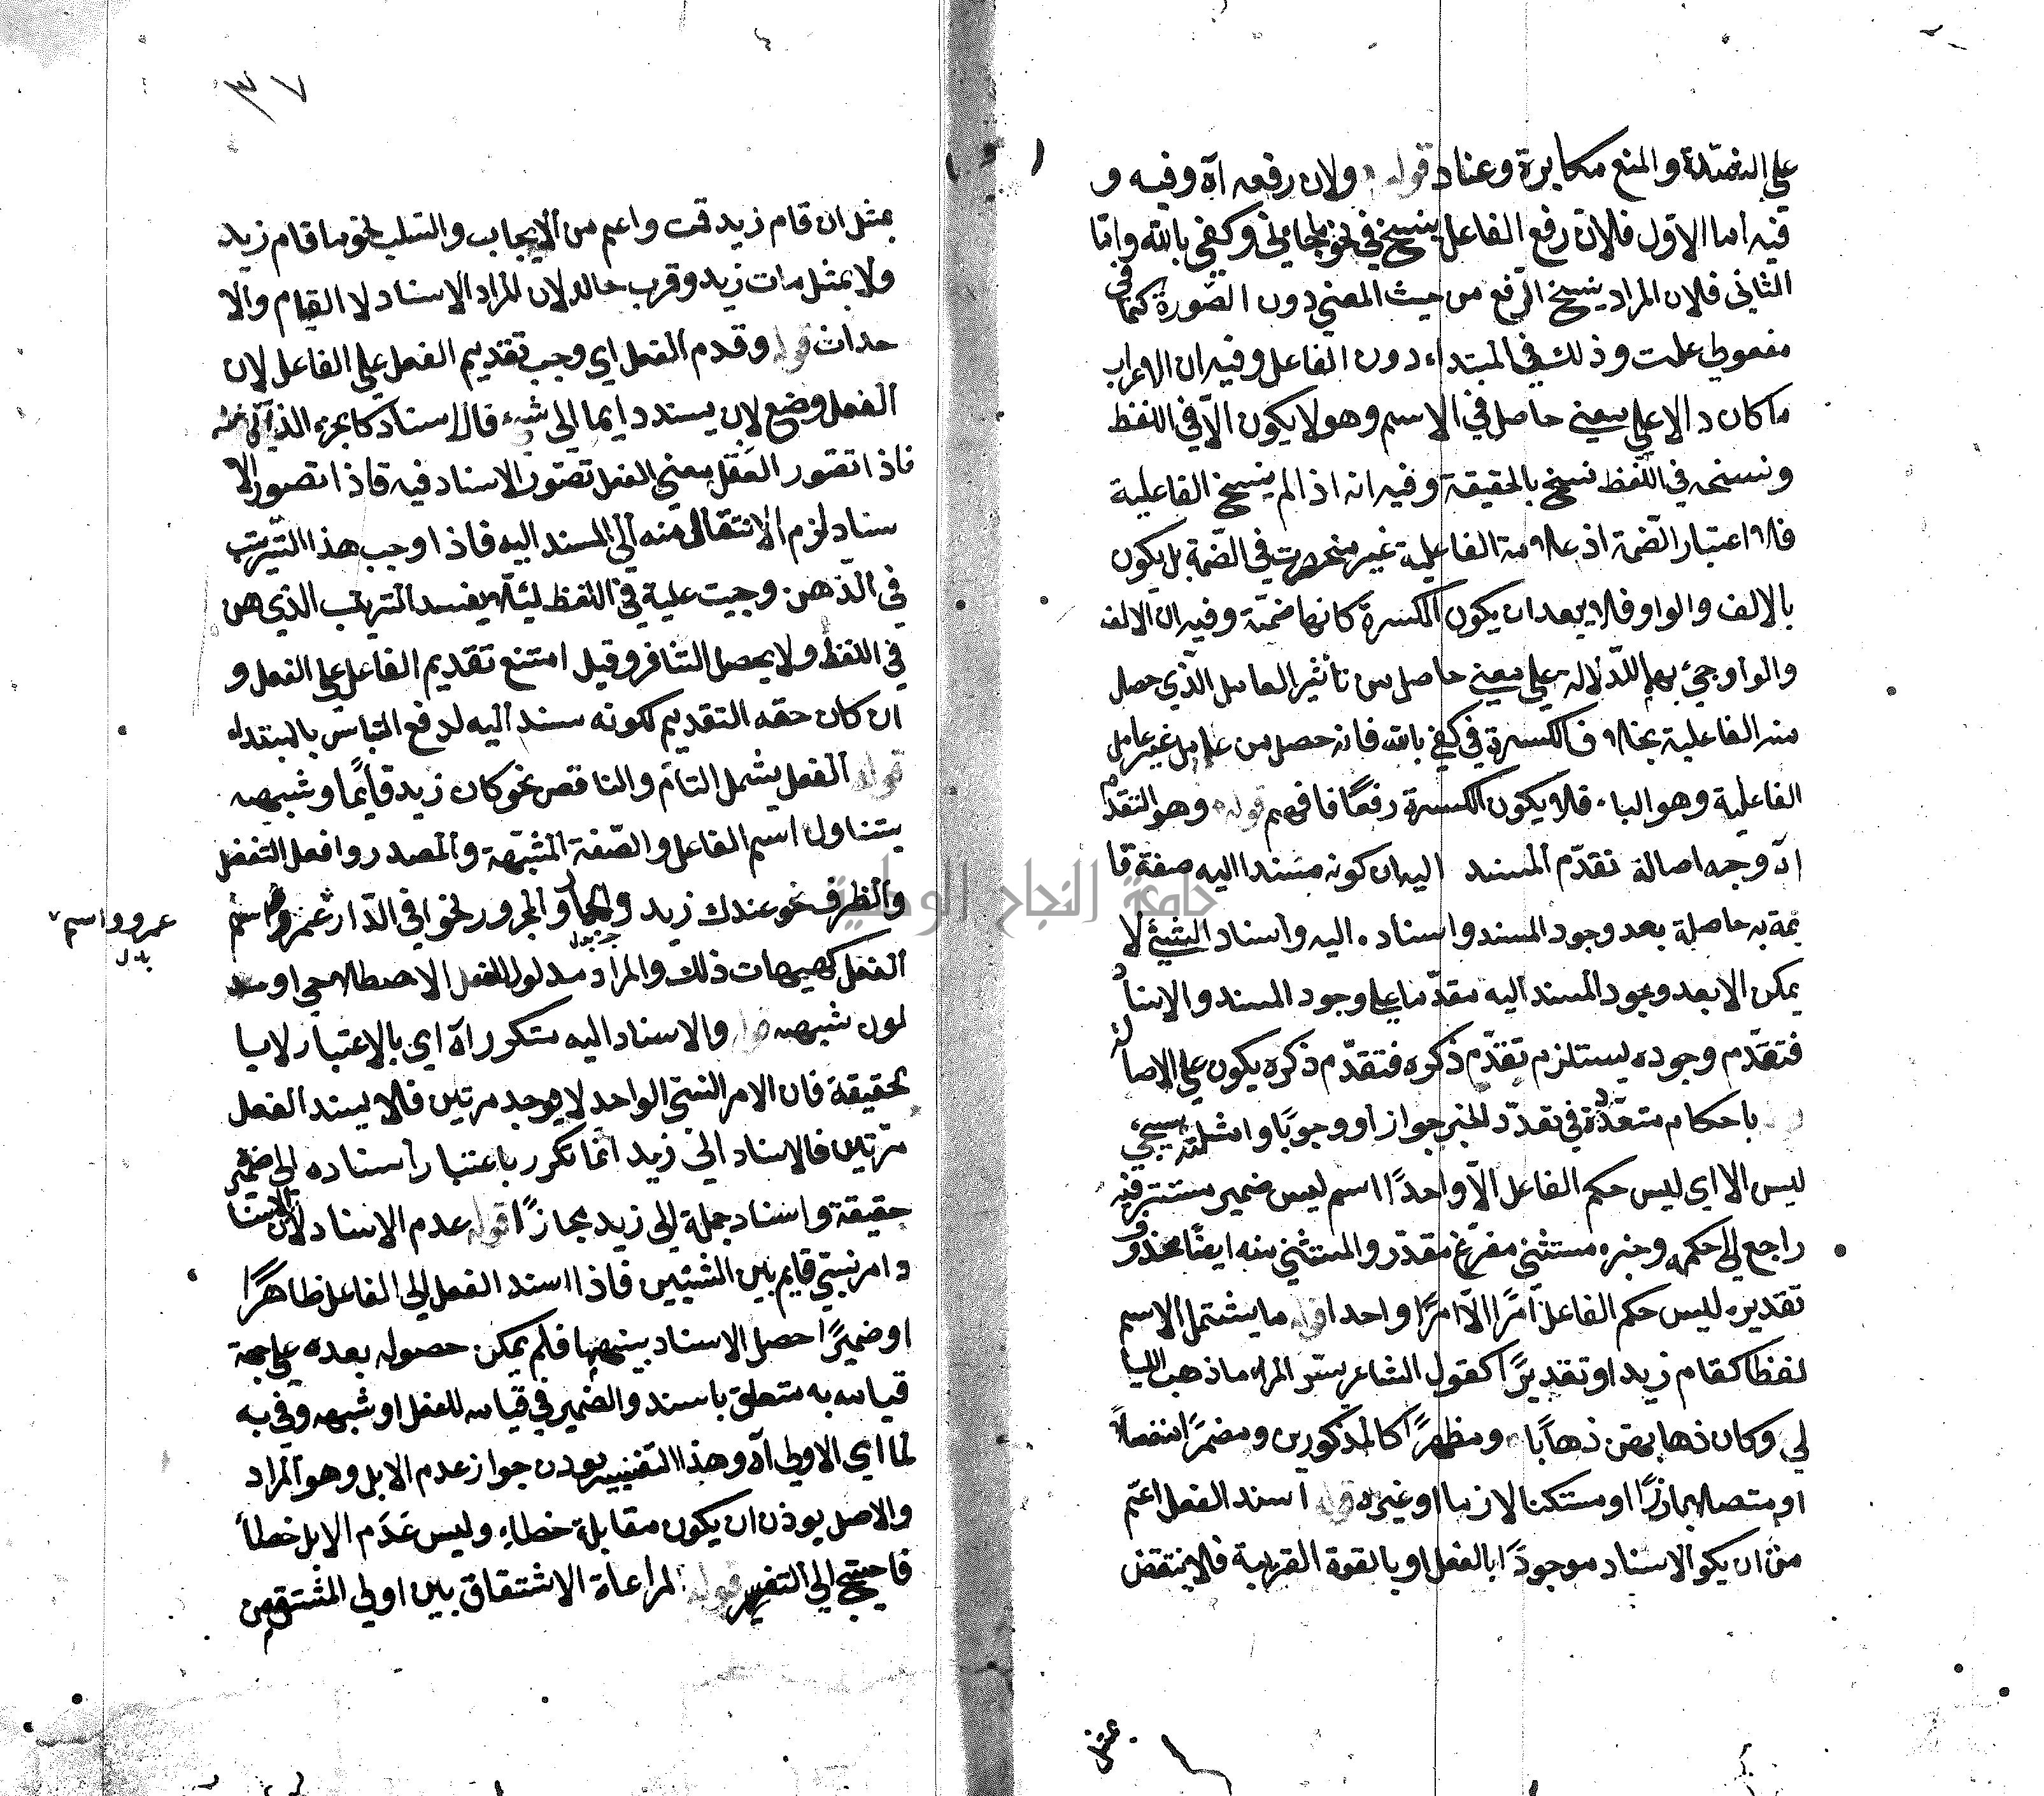 على الفضلة والمنع مكابرة وعناد قوله ولان رفعه آه وفيه و
فيه اما الاوّل فلانّ رفع الفاعل ينسخ في نحو ما جاءني وكفى بالله وامّا
الثاني فلان المراد ينسخ الرفع من حيث المعنى دون الصّورة كما في
مفعولي علمت وذلك في المبتداء دون الفاعل وفيه ان الاعراب
ما كان دالا على معنى حاصل في الاسم وهو لا يكون الّا في اللفظ
ونسخه في اللفظ نسخ بالحقيقة وفيه انه اذا لم ينسخ الفاعلية
فلا اعتبار الضّمة اذ علامة الفاعلية غير منحصرت في الضّمة بل يكون
بالالف والواو فلا يبعد ان يكون الكسرة كانها ضمّة وفيه ان الالف
والواو جيء بهما للدّلالة على معنى حاصل من تأثير العامل الذي حصل
منه الفاعلية بخلاف الكسرة في كفى بالله فانه حصل من عامل غير عامل
الفاعلية وهو الباء فلا يكون الكسرة رفعًا فافهم قوله وهو التقدم
آه وجه اصالة تقدّم المسند اليه ان كونه مسندا اليه صفة قا
ئمة به حاصلة بعد وجود المسند واسناده اليه واسناد الشيئ لا
يمكن الا بعد وجود المسند اليه مقدّما على وجود المسند والاسناد
فتقدّم وجوده يستلزم تقدّم ذكره فتقدّم ذكره يكون على الاصالة
باحكام متعدّدة في تعدّد الخبر جوازا ووجوبًا وامثلته سيجيء
ليس الا اي ليس حكم الفاعل الّا واحدًا اسم ليس ضمير مستتر فيه
راجع الى حكمه وخبره مستثنى مفرّغ مقدّر والمستثنى منه ايضًا محذوف
تقديره ليس حكم الفاعل امرًا الّا امرًا واحدا قوله ما يشتمل الاسم
لفظا كقام زيد او تقديرًا كقول الشاعر يسرّ المرء ما ذهب الليا
لي وكان ذهابهن ذهابًا ومظهرًا كالمذكورين ومضمرًا منفصلًا
او متصلا بارزًا او مستكنا لازما او غيره قوله اسند الفعل اعمّ
من ان يكو الاسناد موجودًا بالفعل او بالقوة القريبة فلا ينتقض
عثل
٣٧
بمثل ان قام زيد قمت واعم من الايجاب والسّلب نحو ما قام زيد
ولا بمثل مات زيد وقرب خالد لان المراد الاسناد لا القيام والا
حداث قوله وقدم الفعل اي وجب تقديم الفعل على الفاعل لان
الفعل وضع لان يسند دايما الى شيء فالاسناد كالجزء الذي
فاذا تصور العقل معنى الفعل تصّور الاسناد فيه فاذا تصور الا
سناد لزم الانتقال منه الى المسند اليه فاذا وجب هذا التّرتيب
في الذّهن وجبت عليه في اللفظ لئلّا يفسد الترتيب الذي هن
في اللفظ ولا يحصل التنافر وقيل امتنع تقديم الفاعل على الفعل و
ان كان حقه التقديم لكونه مسند اليه لدفع التباس بالمبتداء
قوله الفعل يشمل التام والناقص نحو كان زيد قايمًا وشبهه
يتناول اسم الفاعل والصّفة المشبّهة والمصدر وافعل التفضل
والظرف نحو عندك زيد والجار والمجرور نحو افي الدّار عمرو واسم
عمرو واسم
بدل
الفعل كهيهات ذلك والمراد مدلول الفعل الاصطلاحي او مد
لول شبهه قوله والاسناد اليه متكرر آه اي بالاعتبار لا با
لحقيقة فان الامر النسبي الواحد لا يوجد مرتين فلا يسند الفعل
مرّتين فالاسناد الى زيد انّما تكرر باعتبار اسناده الى ضمير
حقيقة واسناد جملة الى زيد مجازًا قوله عدم الاسناد لان الاسنا
د امر نسبي قايم بين الشيئين فاذا اسند الفعل الى الفاعل ظاهرًا
او ضميرًا حصل الاسناد بينهما فلم يمكن حصوله بعده على جهة
قيامه به متعلق باسند والضمير في قيامه للفعل او شبهه وفي به
لما اي الاولى آه وهذا التفسير يوذن جواز عدم الابل وهو المراد
والاصل يوذن ان يكون مقابلة خطاء وليس عَدَم الابل خطأ
فاحتيج الى التفسير قوله لمراعاة الاشتقاق بين اولى المشتق من